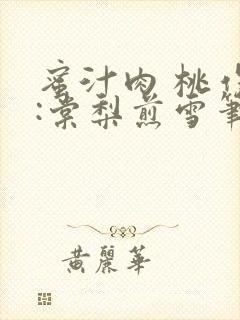 蜜汁肉桃作
:棠梨煎雪筆
黃麗華